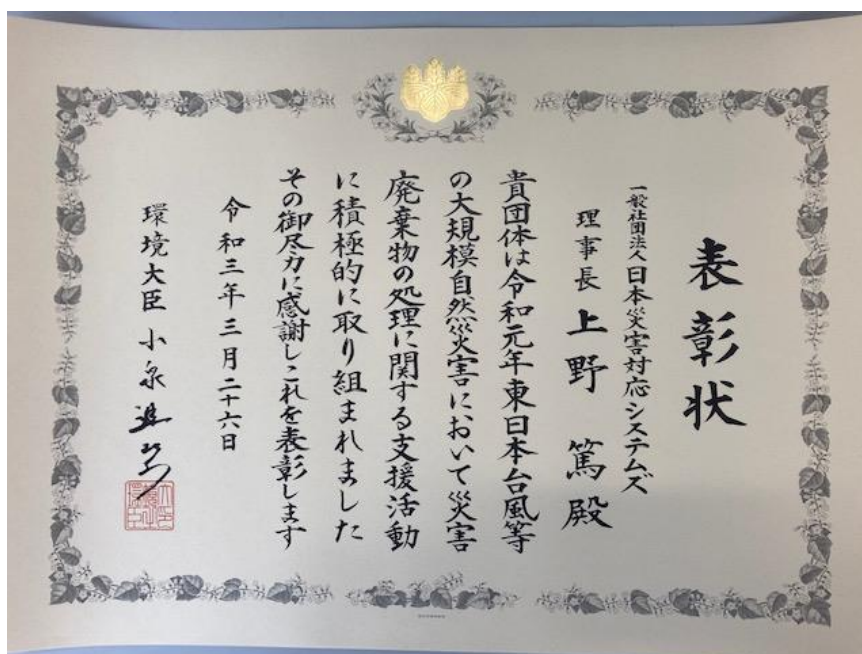 表彰状
一般社団法人日本災害対応システムズ
理事長 上野 篤殿
貴団体は令和元年東日本台風等
の大規模自然災害において災害
廃棄物の処理に関する支援活動
に積極的に取り組まれました
その御尽力に感謝しこれを表彰します
令和三年三月二十六日
環境大臣 小泉進次郎